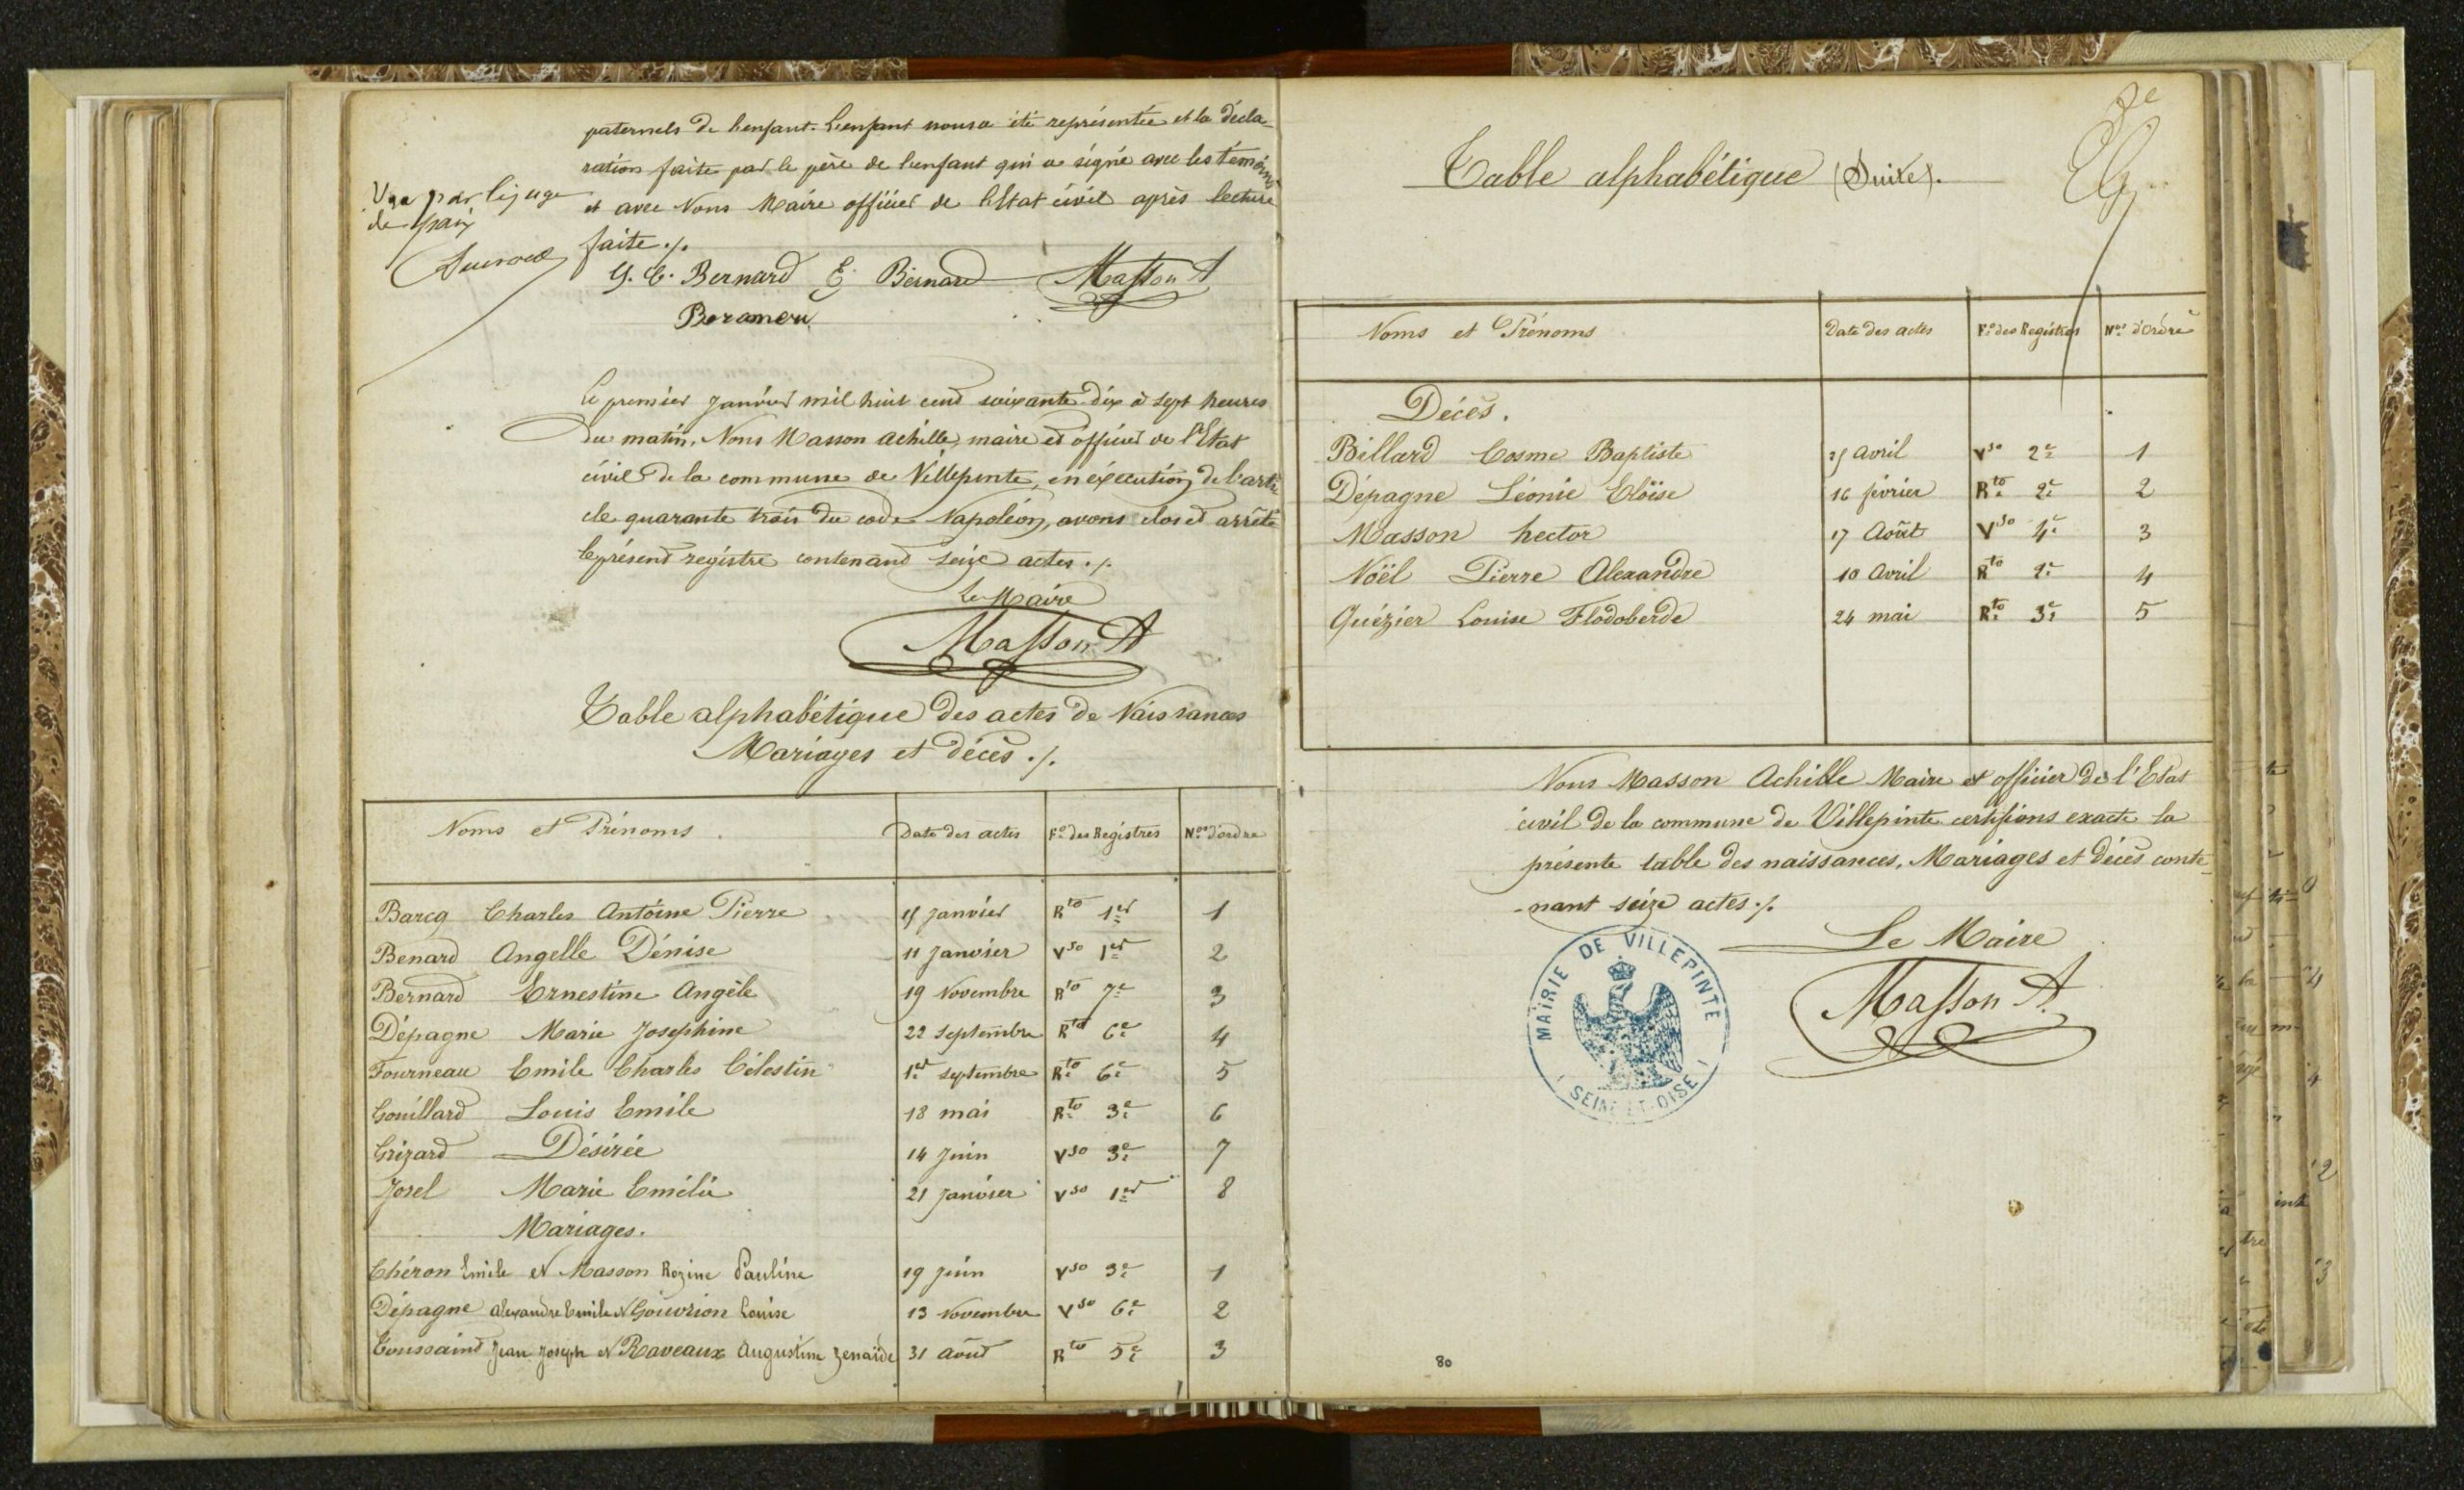 paternels de l'enfant. L'enfant nous a été représentée et la décla-
ration faite par le père de l'enfant qui a signé avec les témoins
et avec Nous Maire officier de l'Etat civil après lecture
faite ./.
Vu par le juge
de paix
G. C. Bernard E Bernard Masson A
Le premier Janvier mil huit cent soixante-dix à sept heures
du matin, Nous Masson Achille, maire et officier de l'Etat
civil de la commune de Villepinte, en éxécution de l'arti
cle quarante trois du code Napoléon, avons clos et arrêté
le présent registre contenant seize actes ./.
Le Maire
Masson A
Table alphabétique des actes de Naissances
Mariages et décès ./.
Noms et Prénoms. Date des actes F.º des Registres N.os d'ordre
Barcq Charles Antoine Pierre 15 Janvier R.to 1.er 1
Benard Angelle Dénise 11 Janvier V.so 1.er 2
Bernard Ernestine Angèle 19 Novembre R.to 7.e 3
Dépagne Marie Josephine 22 Septembre R.to 6.e 4
Fourneau Emile Charles Célestin 1.er septembre R.to 6.e 5
Gouillard Louis Emile 18 mai R.to 3.e 6
Grizard Désirée 14 Juin V.so 3.e 7
Josel Marie Emélie 21 Janvier V.so 1.er 8
Mariages.
Chéron Emile et Masson Rozine Pauline 19 Juin V.so 3.e 1
Dépagne Alexandre Emile et Gouvrion Louise 13 Novembre V.so 6.e 2
Toussaint Jean Joseph et Raveaux Augustine Zenaïde 31 Août R.to 5.e 3
Table alphabétique (Suite).
Noms et Prénoms Date des actes F.º des Registres N.os d'Ordre
Décès.
Billard Cosme Baptiste 25 avril V.so 2.e 1
Dépagne Léonie Eloïse 16 février R.to 2.e 2
Masson hector 17 Août V.so 4.e 3
Noël Pierre Alexandre 10 Avril R.to 2.e 4
Quézier Louise Flodoberde 24 mai R.to 3.e 5
Nous Masson Achille Maire et officier de l'Etat
civil de la commune de Villepinte certifions exacte la
présente table des naissances, Mariages et décès conte-
nant seize actes ./.
Le Maire
Masson A.
MAIRIE DE VILLEPINTE
SEINE-ET-OISE
80